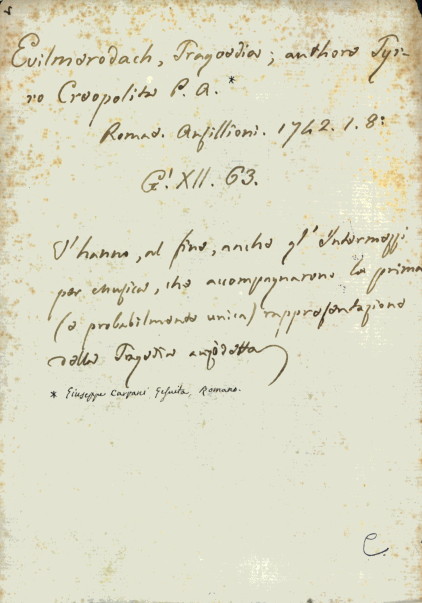 Evilmerodach, Tragoedia; authore Tyr-
ro Creopolita P. A. *
Romae. Anfillioni. 1742. 1. 8:
G! XII. 63.
V'hanno, al fine, anche gl' Intermezzi
per Musica, che accompagnarono la prima
(e probabilmente unica) rappresentazione
della Tragedia anzidetta
* Giuseppe Carpani Gesuita, Romano.
C.